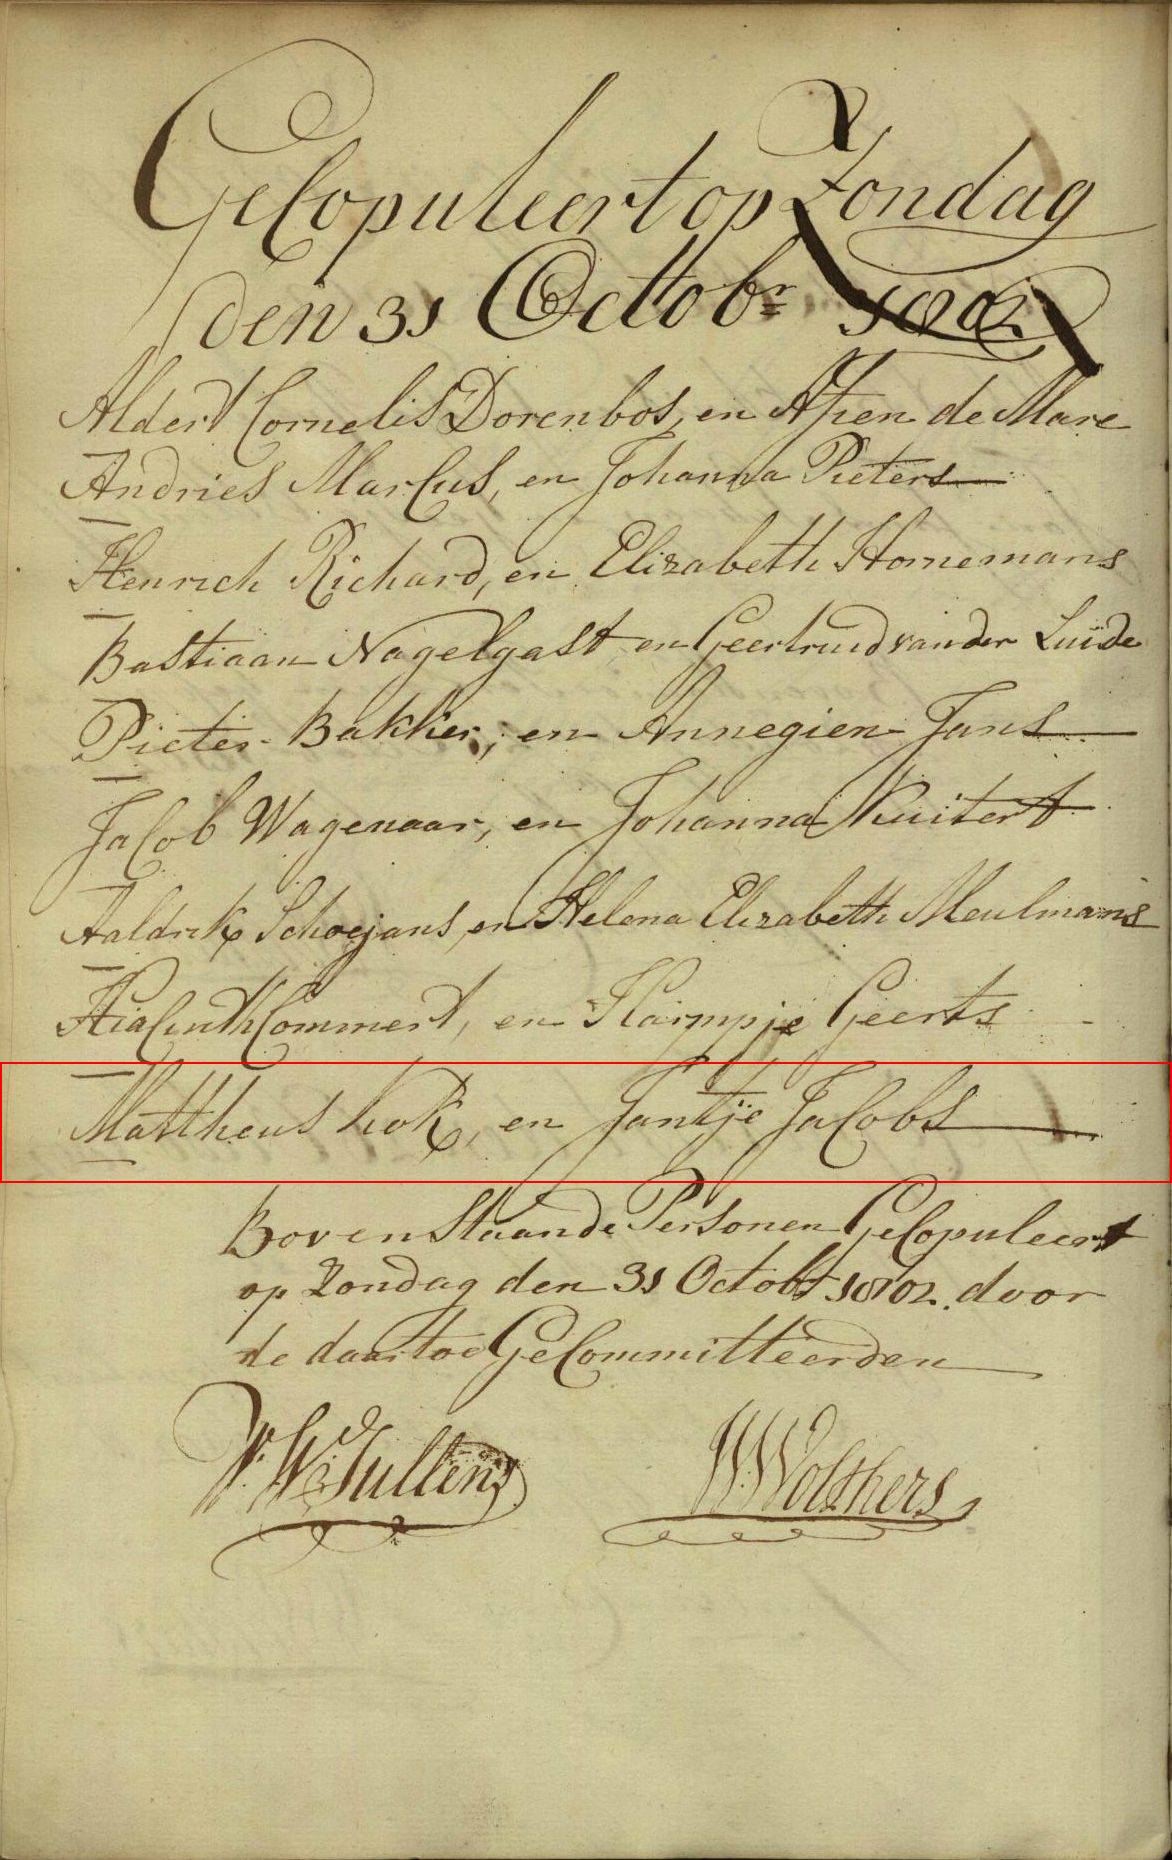 GeCopuleert op Zondag
den 31 Octobr 1802
Aldert Cornelis Dorenbos, en Apien de Mare
Andries MarCus, en Johanna Pieters
Henrich Richard, en Elizabeth Hornemans
Bastiaan Nagelgast en Geertruid van der Luide
Pieter Bakker, en Annegien Jans
JaCob Wagenaar, en Johanna Kuitert
Aaldrik Schoejans, en Helena Elizabeth Meulmans
HiaCinth Commert, en Harmpje Geerts
Mattheus kok, en Jantje JaCobs
Bovenstaande Personen GeCopuleert
op Zondag den 31 Octobr 1802. door
de daartoe GeCommitteerden
W. Wolthers